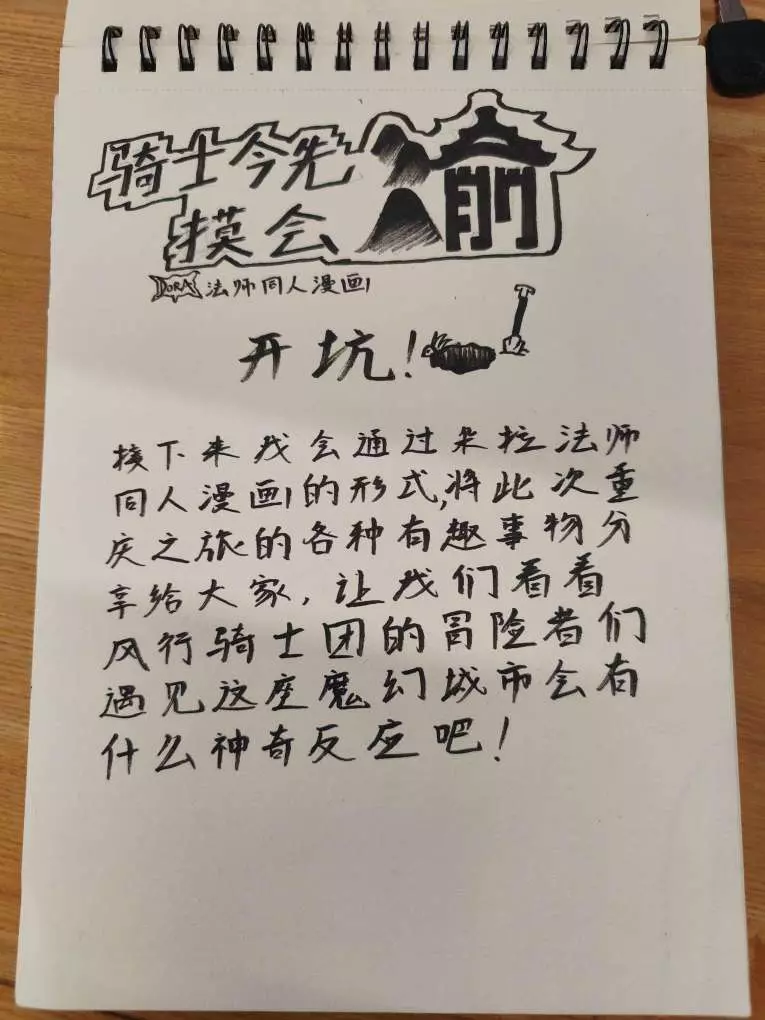 骑士今先
摸会渝
DORA法师同人漫画
开坑!
接下来我会通过朵拉法师
同人漫画的形式,将此次重
庆之旅的各种有趣事物分
享给大家,让我们看看
风行骑士团的冒险者们
遇见这座魔幻城市会有
什么神奇反应吧!